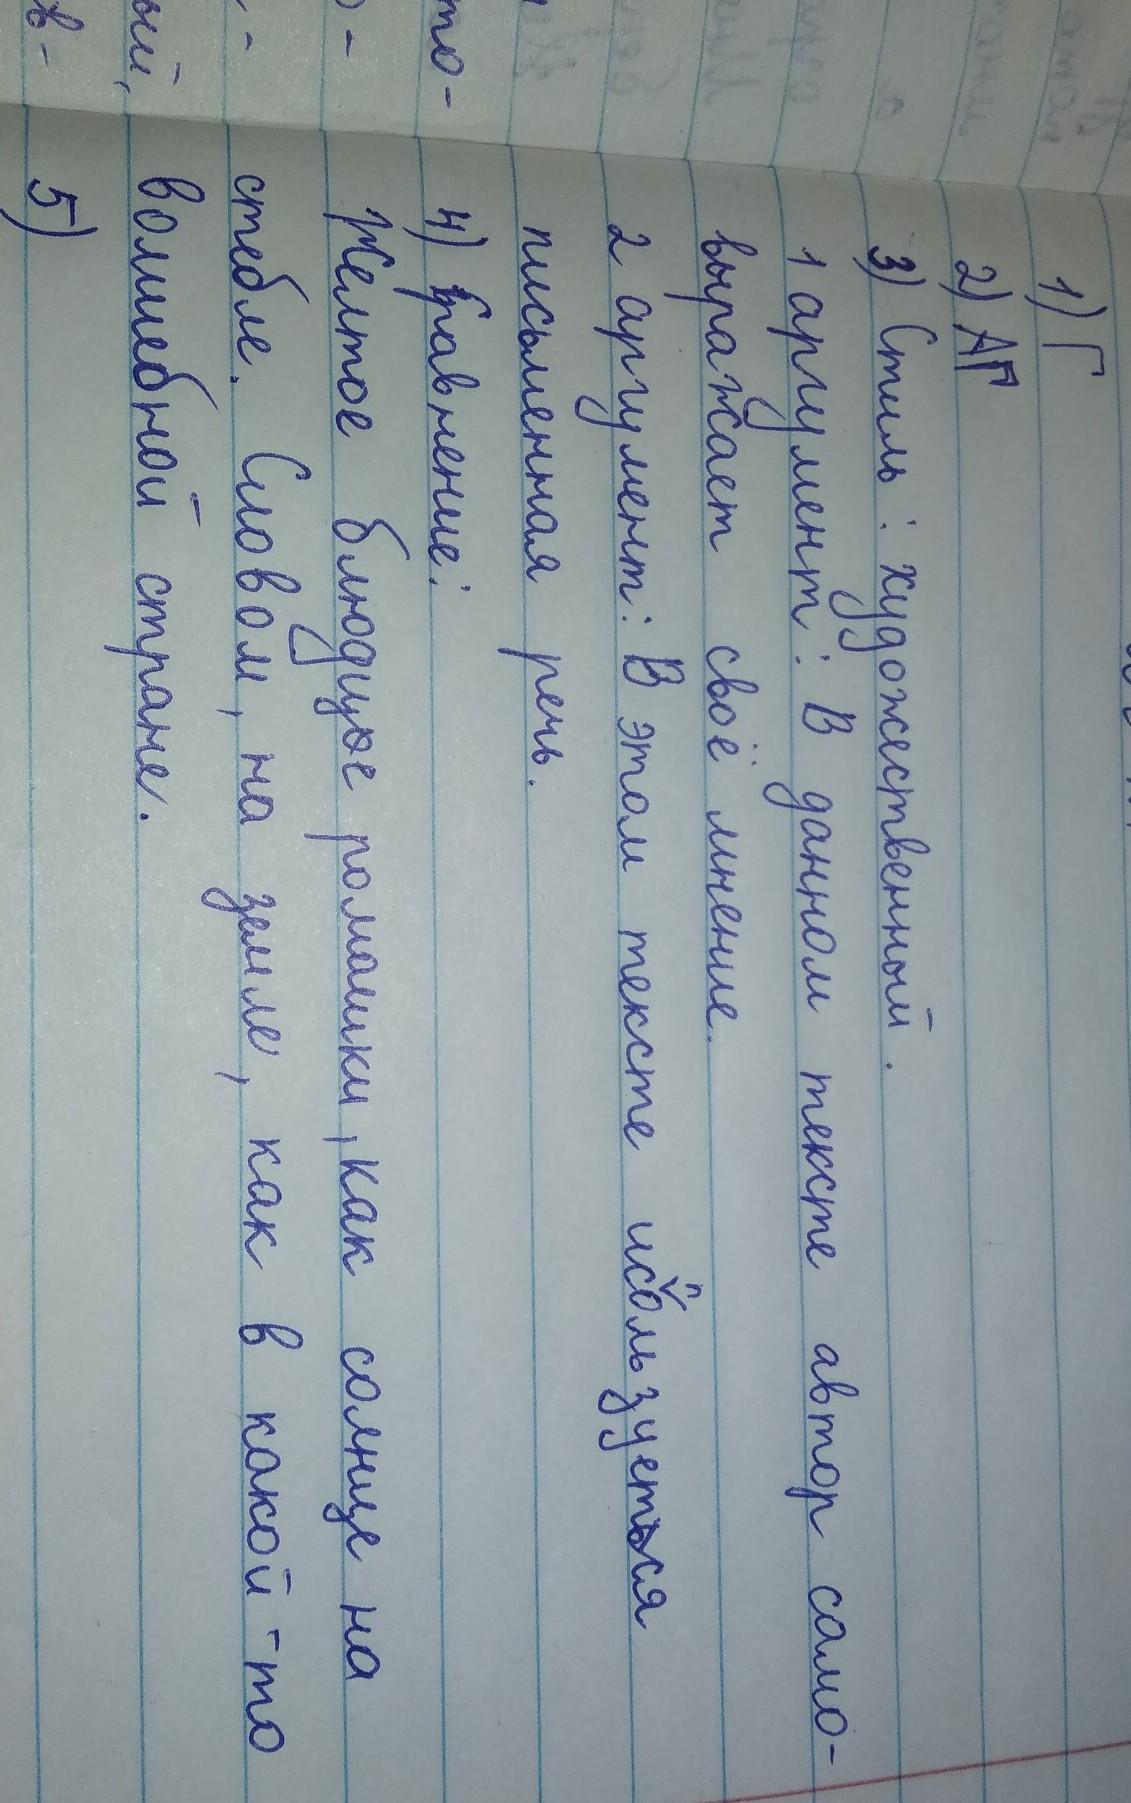 1) Г
2) АГ
3) Стиль: художественный.
1 аргумент: В данном тексте автор само-
выражает своё мнение.
2 аргумент: В этом тексте используется
письменная речь.
4) Сравнение:
Желтое блюдцое ромашки, как солнце на
стебле. Словом, на земле, как в какой-то
волшебной стране.
5)
то-
ый,
в-